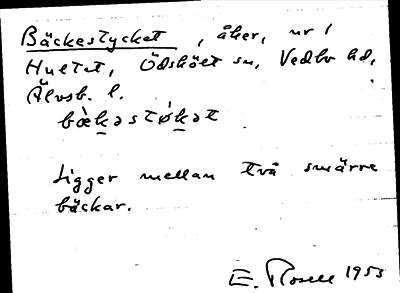 Bäckestycket, åker, nr 1
Hultet, Ödskölt sn, Vedbo hd,
Älvsb. l.
bæ̀kəstỳkət
Ligger mellan två smärre
bäckar.
E. Rosell 1953